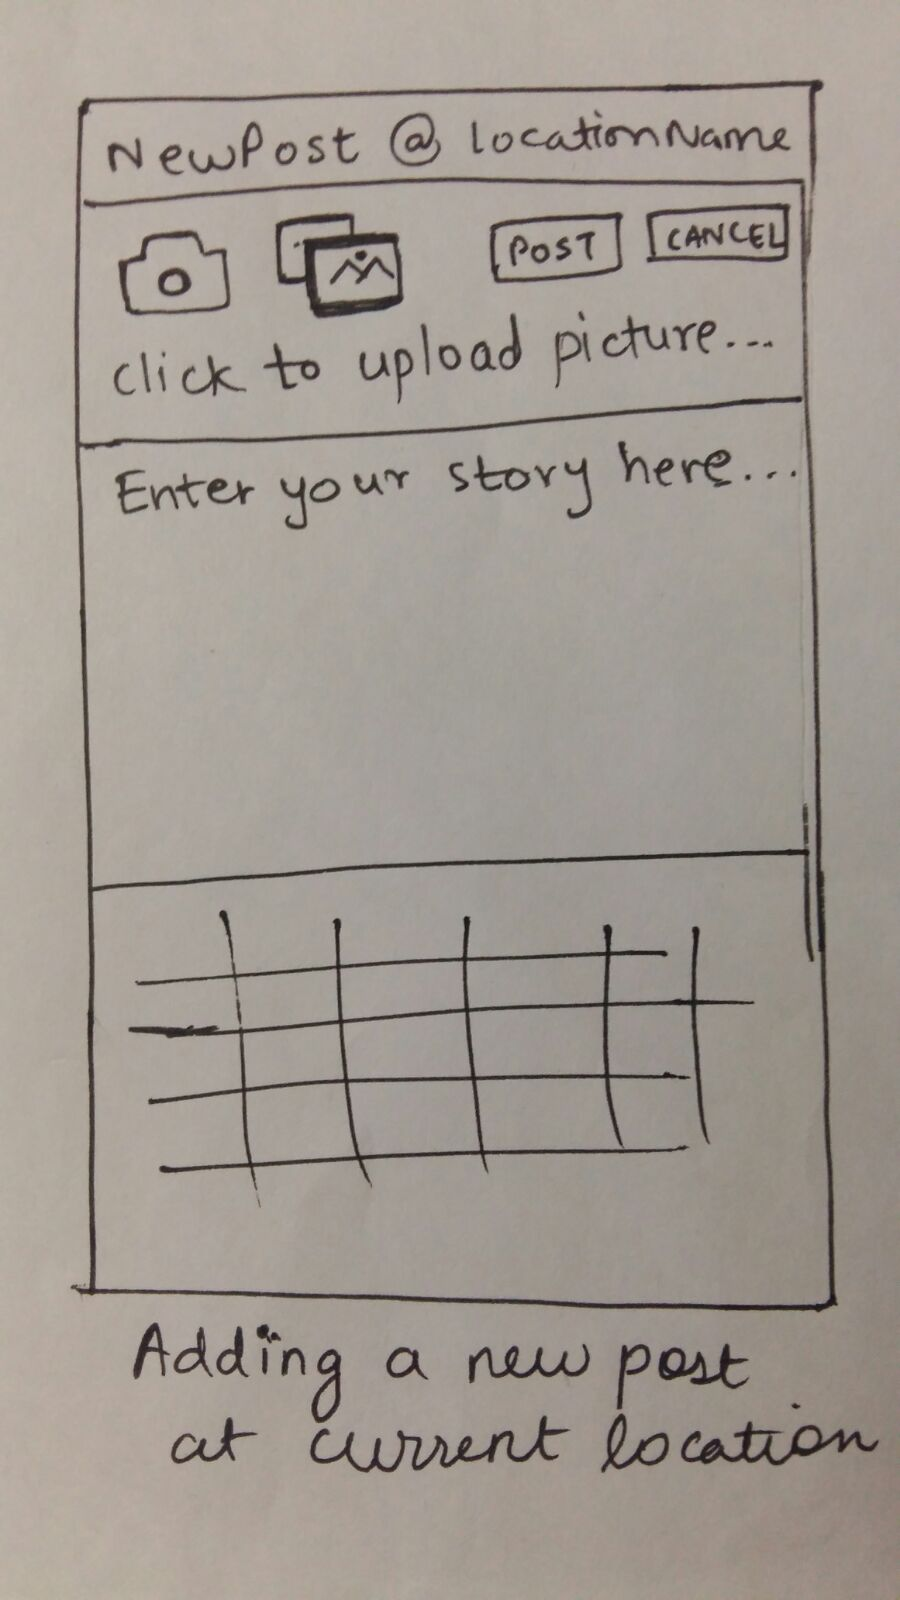 NewPost @ locationName
POST CANCEL
click to upload picture...
Enter your story here...
Adding a new post
at current location